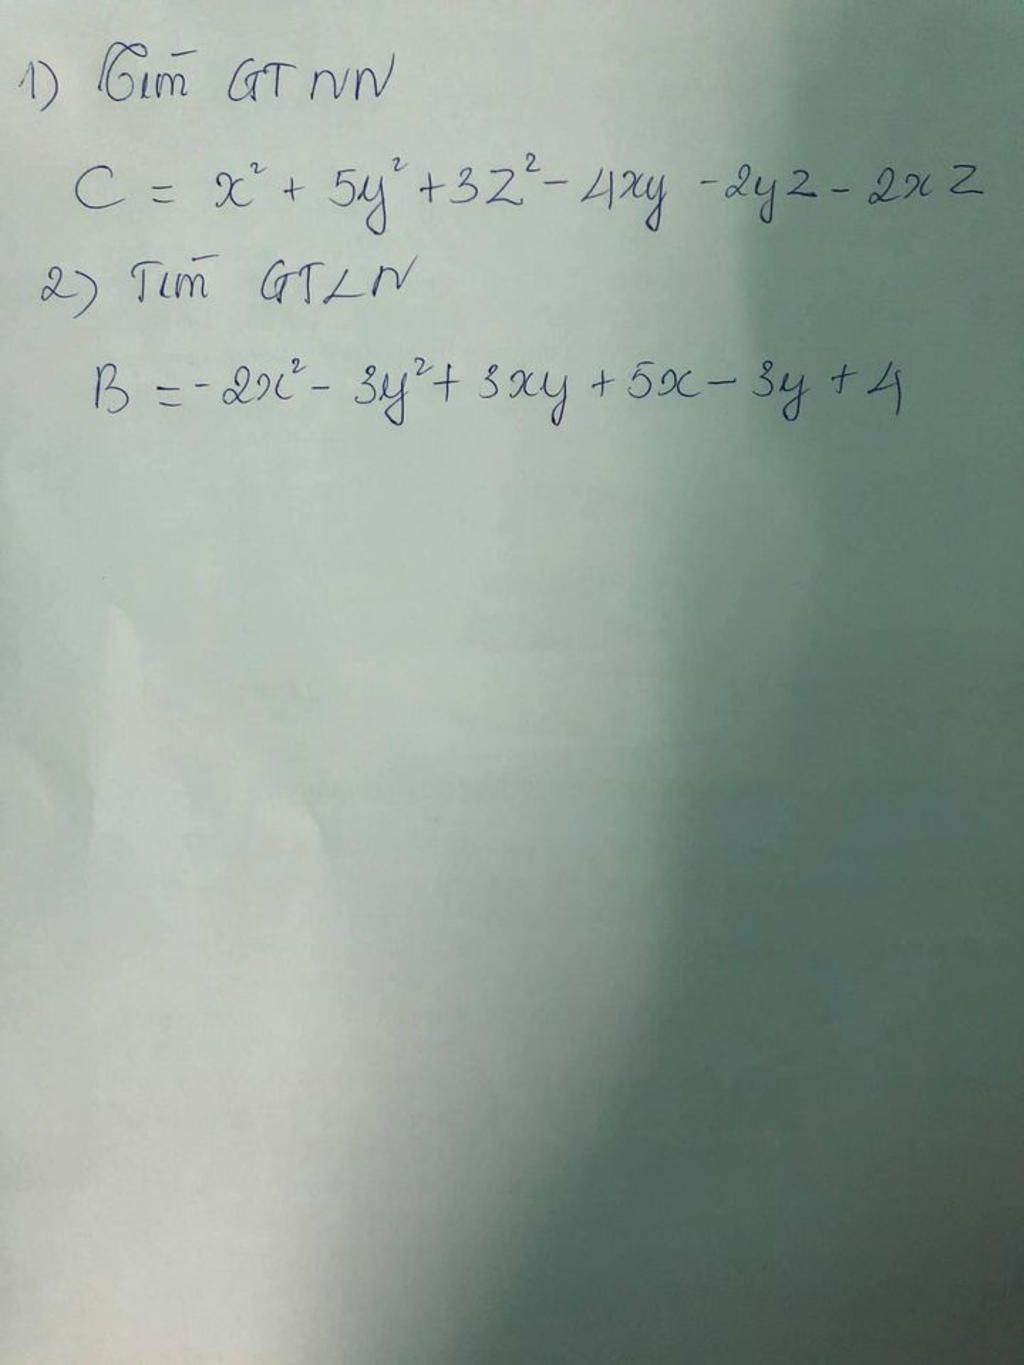 1) Tìm GTNN
C = x² + 5y² + 3z² - 4xy - 2yz - 2xz
2) Tìm GTLN
B = -2x² - 3y² + 3xy + 5x - 3y + 4